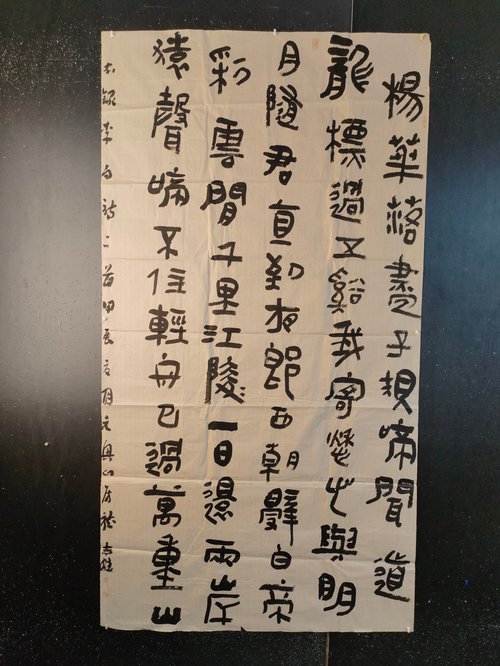 楊華落盡子規啼聞道
龍標過五谿我寄愁心與明
月隨君直到夜郎西朝辭白帝
彩雲間千里江陵一日還兩岸
猿聲啼不住輕舟已過萬重山
錄李白詩二首